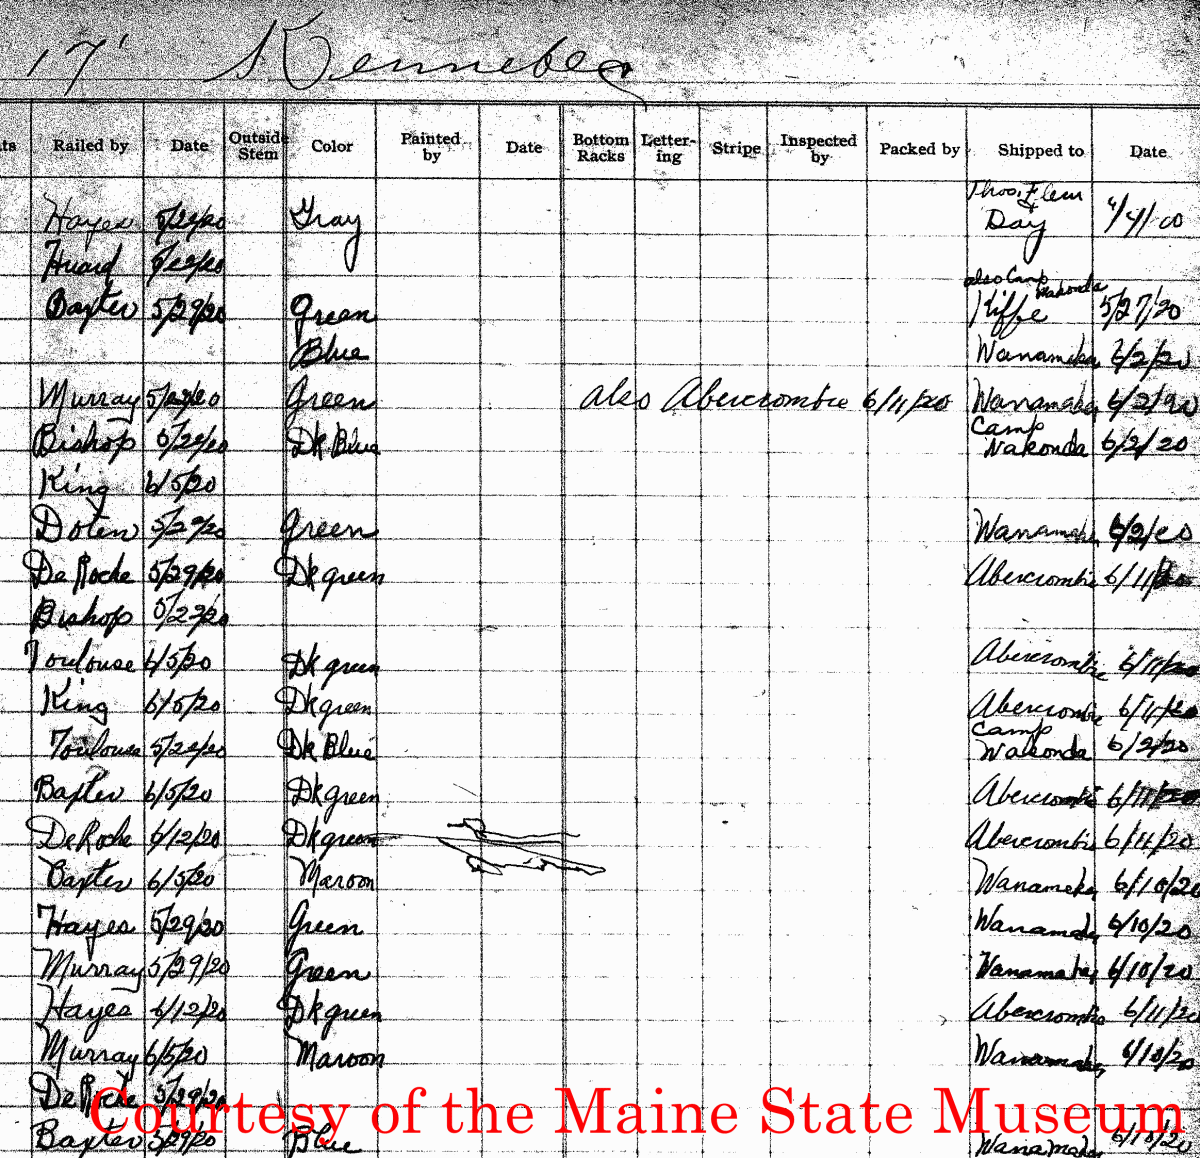 17' Kennebec
ts Railed by Date Outside Stem Color Painted by Date Bottom Racks Letter-ing Stripe Inspected by Packed by Shipped to Date
Thos. E.
Hayes Gray Day
Huard
also Camp Wakonda
Baxter 5/29/20 Green Kiffe 5/27/20
Blue Wanamaka 6/2/20
Murray Green also Abercrombie 6/11/20 Wanamaka 6/2/20
Camp
Bishop Dk Blue Wakonda 6/2/20
King 6/5/20
Doten 5/29/20 Green Wanamaka 6/2/20
DeRoche 5/29/20 Dk green Abercrombie 6/11/20
Bishop
Toulouse 6/5/20 Dk green Abercrombie 6/11/20
King 6/5/20 Dk green Abercrombie 6/11/20
Camp
Toulouse Dk Blue Wakonda 6/2/20
Baxter 6/5/20 Dk green Abercrombie 6/11/20
DeRoche 6/12/20 Dk green Abercrombie
Baxter 6/5/20 Maroon Wanamaka 6/10/20
Hayes 5/29/20 Green Wanamaka 6/10/20
Murray 5/29/20 Green Wanamaka 6/10/20
Hayes 6/12/20 Dk green Abercrombie 6/11/20
Murray 6/5/20 Maroon Wanamaka 6/10/20
DeRoche 5/29/20
Courtesy of the Maine State Museum
Baxter 5/29/20 Blue Wanamaka 6/10/20